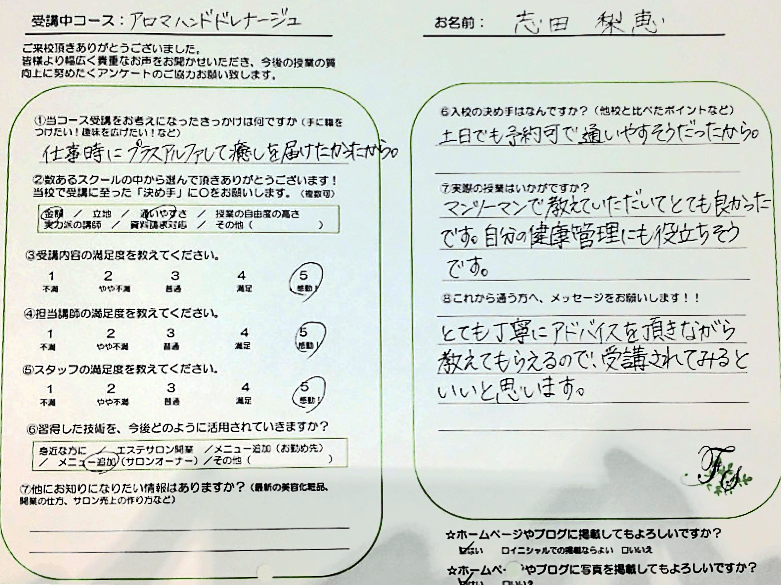 受講中コース：アロマハンドドレナージュ
お名前： 志田 梨恵
ご来校頂きありがとうございました。
皆様より幅広く貴重なお声をお聞かせいただき、今後の授業の質
向上に努めたくアンケートのご協力お願い致します。
①当コース受講をお考えになったきっかけは何ですか（手に職を
つけたい！趣味を広げたい！など）
仕事時にプラスアルファして癒しを届けたかったから。
②数あるスクールの中から選んで頂きありがとうございます！
当校で受講に至った「決め手」に○をお願いします。（複数可）
金額 ／ 立地 ／ 通いやすさ ／ 授業の自由度の高さ
実力派の講師 ／ 資料請求対応 ／ その他（ ）
③受講内容の満足度を教えてください。
1 2 3 4 5
不満 やや不満 普通 満足 感動！
④担当講師の満足度を教えてください。
1 2 3 4 5
不満 やや不満 普通 満足 感動！
⑤スタッフの満足度を教えてください。
1 2 3 4 5
不満 やや不満 普通 満足 感動！
⑥習得した技術を、今後どのように活用されていきますか？
身近な方に ／ エステサロン開業 ／メニュー追加（お勤め先）
／ メニュー追加（サロンオーナー）／その他（ ）
⑦他にお知りになりたい情報はありますか？（最新の美容化粧品、
開業の仕方、サロン売上の作り方など）
⑥入校の決め手はなんですか？（他校と比べたポイントなど）
土日でも予約可で通いやすそうだったから。
⑦実際の授業はいかがですか？
マンツーマンで教えていただいてとても良かった
です。自分の健康管理にも役立ちそう
です。
⑧これから通う方へ、メッセージをお願いします！！
とても丁寧にアドバイスを頂きながら
教えてもらえるので、受講されてみると
いいと思います。
☆ホームページやブログに掲載してもよろしいですか？
☑はい □イニシャルでの掲載ならよい □いいえ
☆ホームページやブログに写真を掲載してもよろしいですか？
☑はい □いいえ